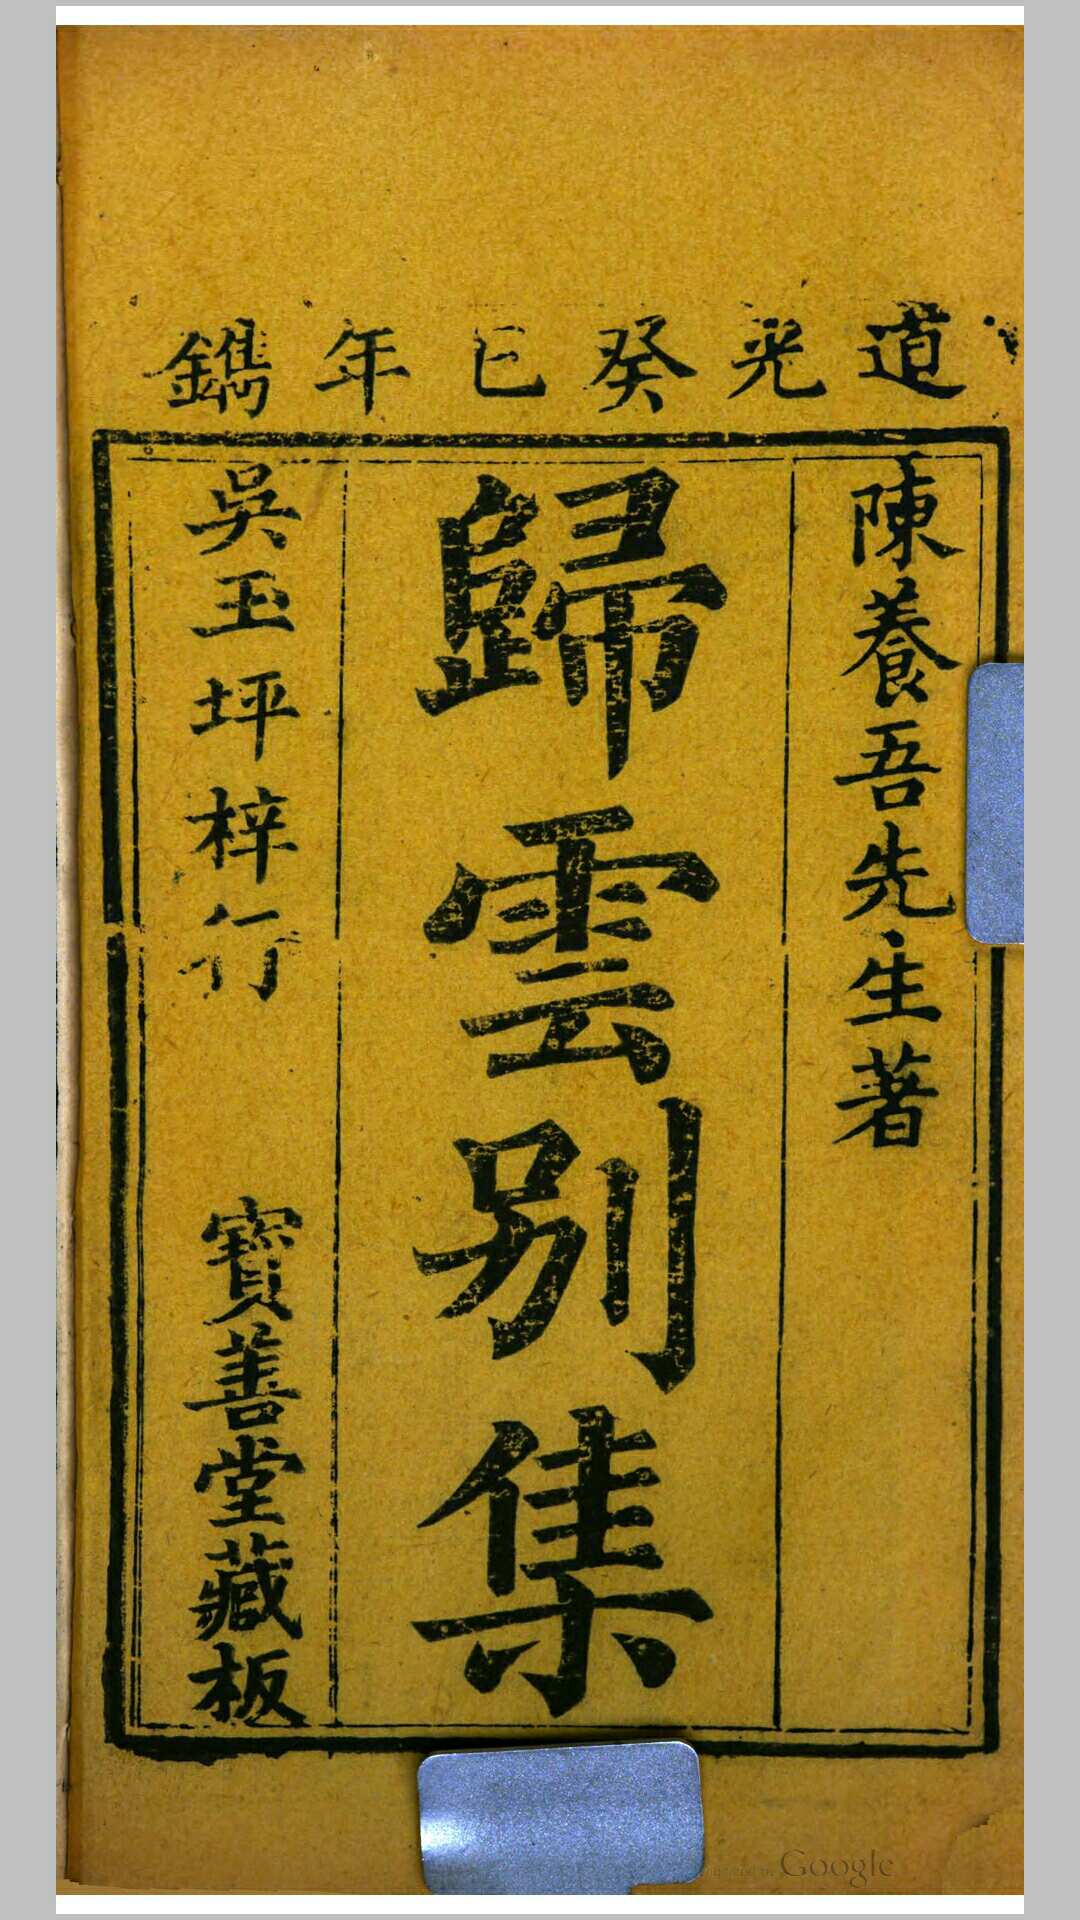 道光癸巳年鐫
陳養吾先生著
歸雲別集
吳玉坪梓行
寶善堂藏板
Google